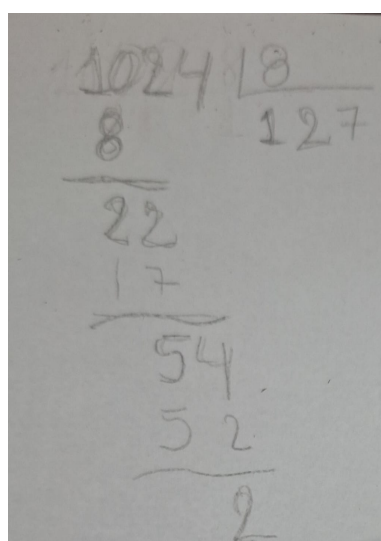 1024 | 8
8 127
22
17
54
52
2